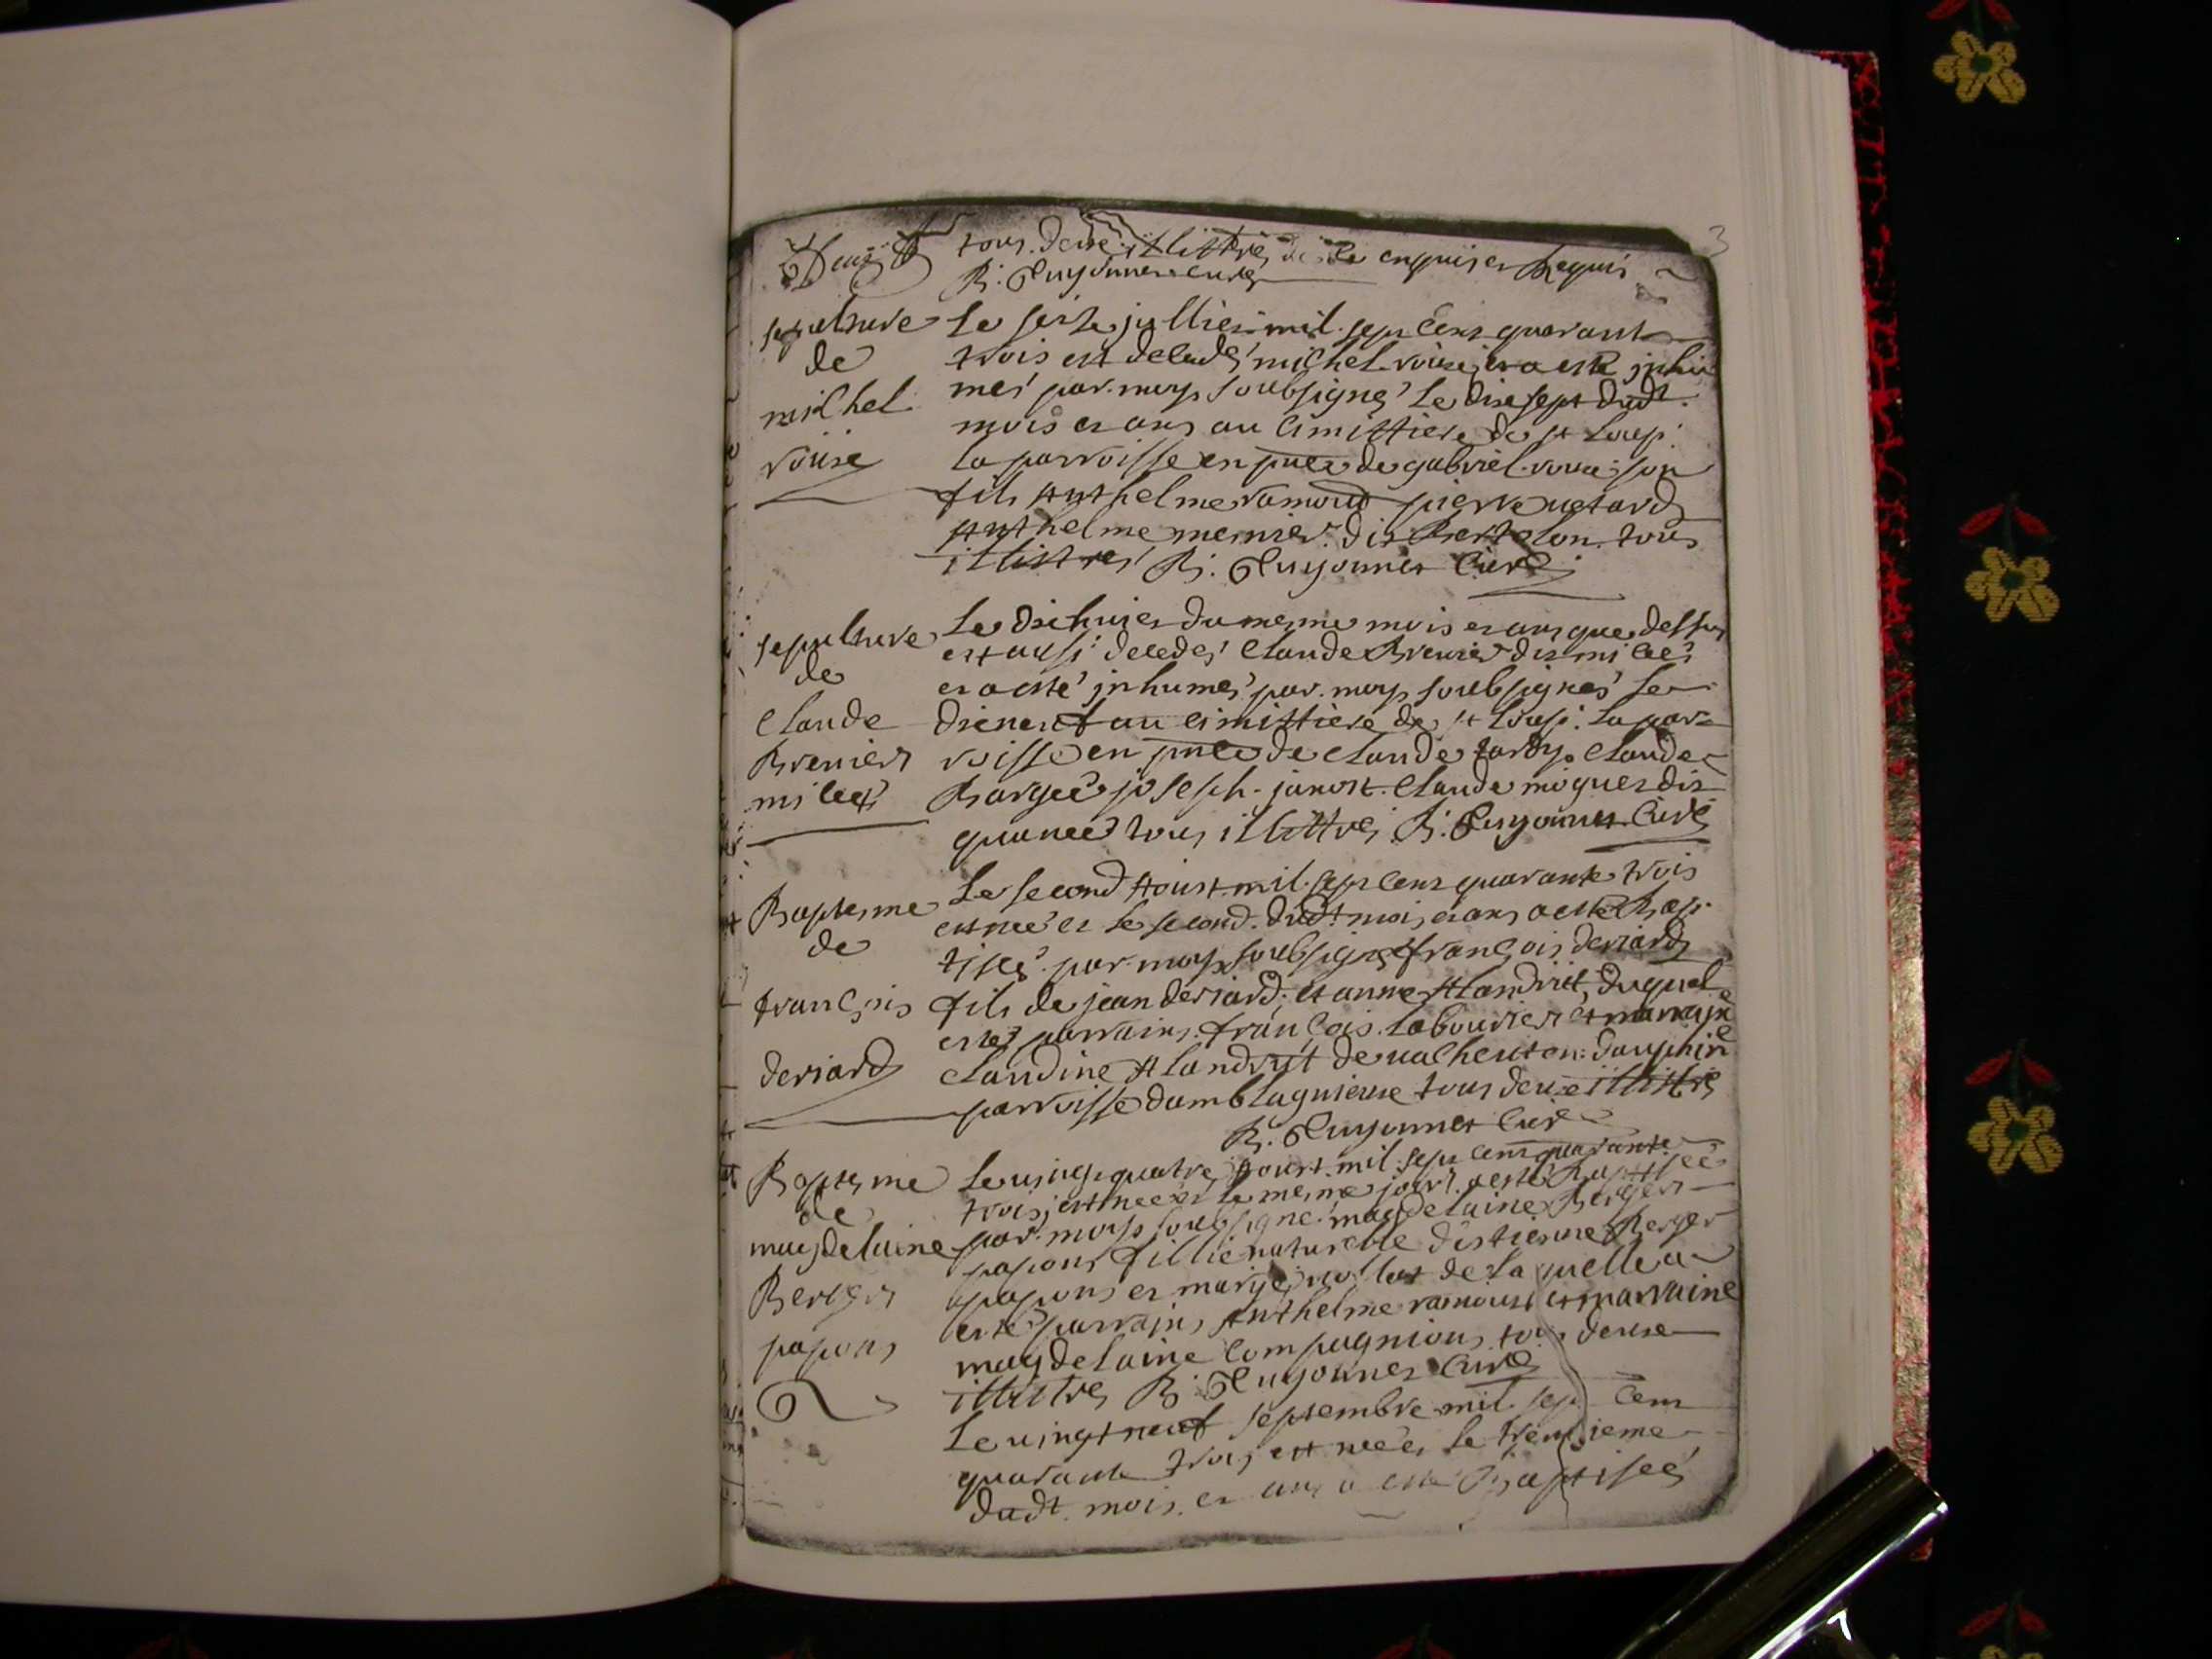 3
Deux tous deux illittrés de ce enquis et Requis
R. Guyonnet curé
sepulture Le seize jullier mil sept cens quarant
de trois est decedé michel roüse et a esté jnhu
michel mé par moy soubsigné Le dixsept dudt.
roüse mois et ans au cimittiere de st Loup
La parroisse en pnce de gabriel rouse son
fils Anthelme ramoud pierre uetard
Anthelme mernier dit Bertelon tous
illittres R. Guyonnet Curé
sepulture Le dixhuiet du mesme mois et ans que dessus
de est aussi decedé Claude Brenier dit milleé
et a esté jnhumé par moy soubsigné Le
Claude dixneuf au cimittiere de st Loup La par
Brenier roisse en pnce de Claude tardy Claude
Bargee joseph janost Claude moguet dit
tous illittrés R. Guyonnet Curé
Baptesme Le second Aoust mil sept cens quarante trois
de est nee et Le second dudt mois et ans a esté Bap
tisé par moy soubsigné françois deriard
françois fils de jean deriard et anne Alandrit duquel
esté parrains françois Labourier et marraine
deriard Claudine Alandryt de dauphiné
parroisse damblagnieux tous deux illittré
R. Guyonnet Curé
Baptesme Le uingt quatre Aoust mil sept cens quarante
de trois est nee et Le mesme jour a esté Baptisée
magdelaine par moy soubsigné magdelaine Berger
papons fillie naturelle d'estienne Berger
Berger papons et marye de Laquelle a
esté parrains Anthelme ramoud et marraine
papons magdelaine Compagnions tous deux
illittres R. Guyonnet Curé
Le uingt neuf septembre mil sept Cens
quarante trois est née et Le trentieme
dudt. mois et ans a esté Baptiseé